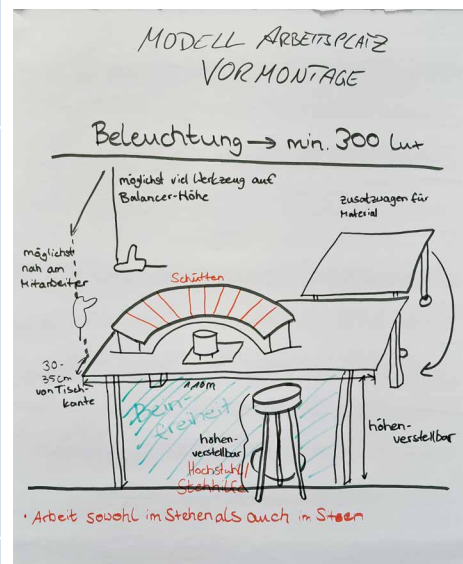 MODELL ARBEITSPLATZ
VORMONTAGE
Beleuchtung → min. 300 Lux
möglichst viel Werkzeug auf
Balancer-Höhe
zusatzwagen für
Material
möglichst
nah am
Mitarbeiter
Schütten
30-
35cm
von Tisch-
kante
1,10m
Bein-
freiheit
höhen-
verstellbar
höhen-
verstellbar
Hochstuhl/
Stehhilfe
• Arbeit sowohl im Stehen als auch im